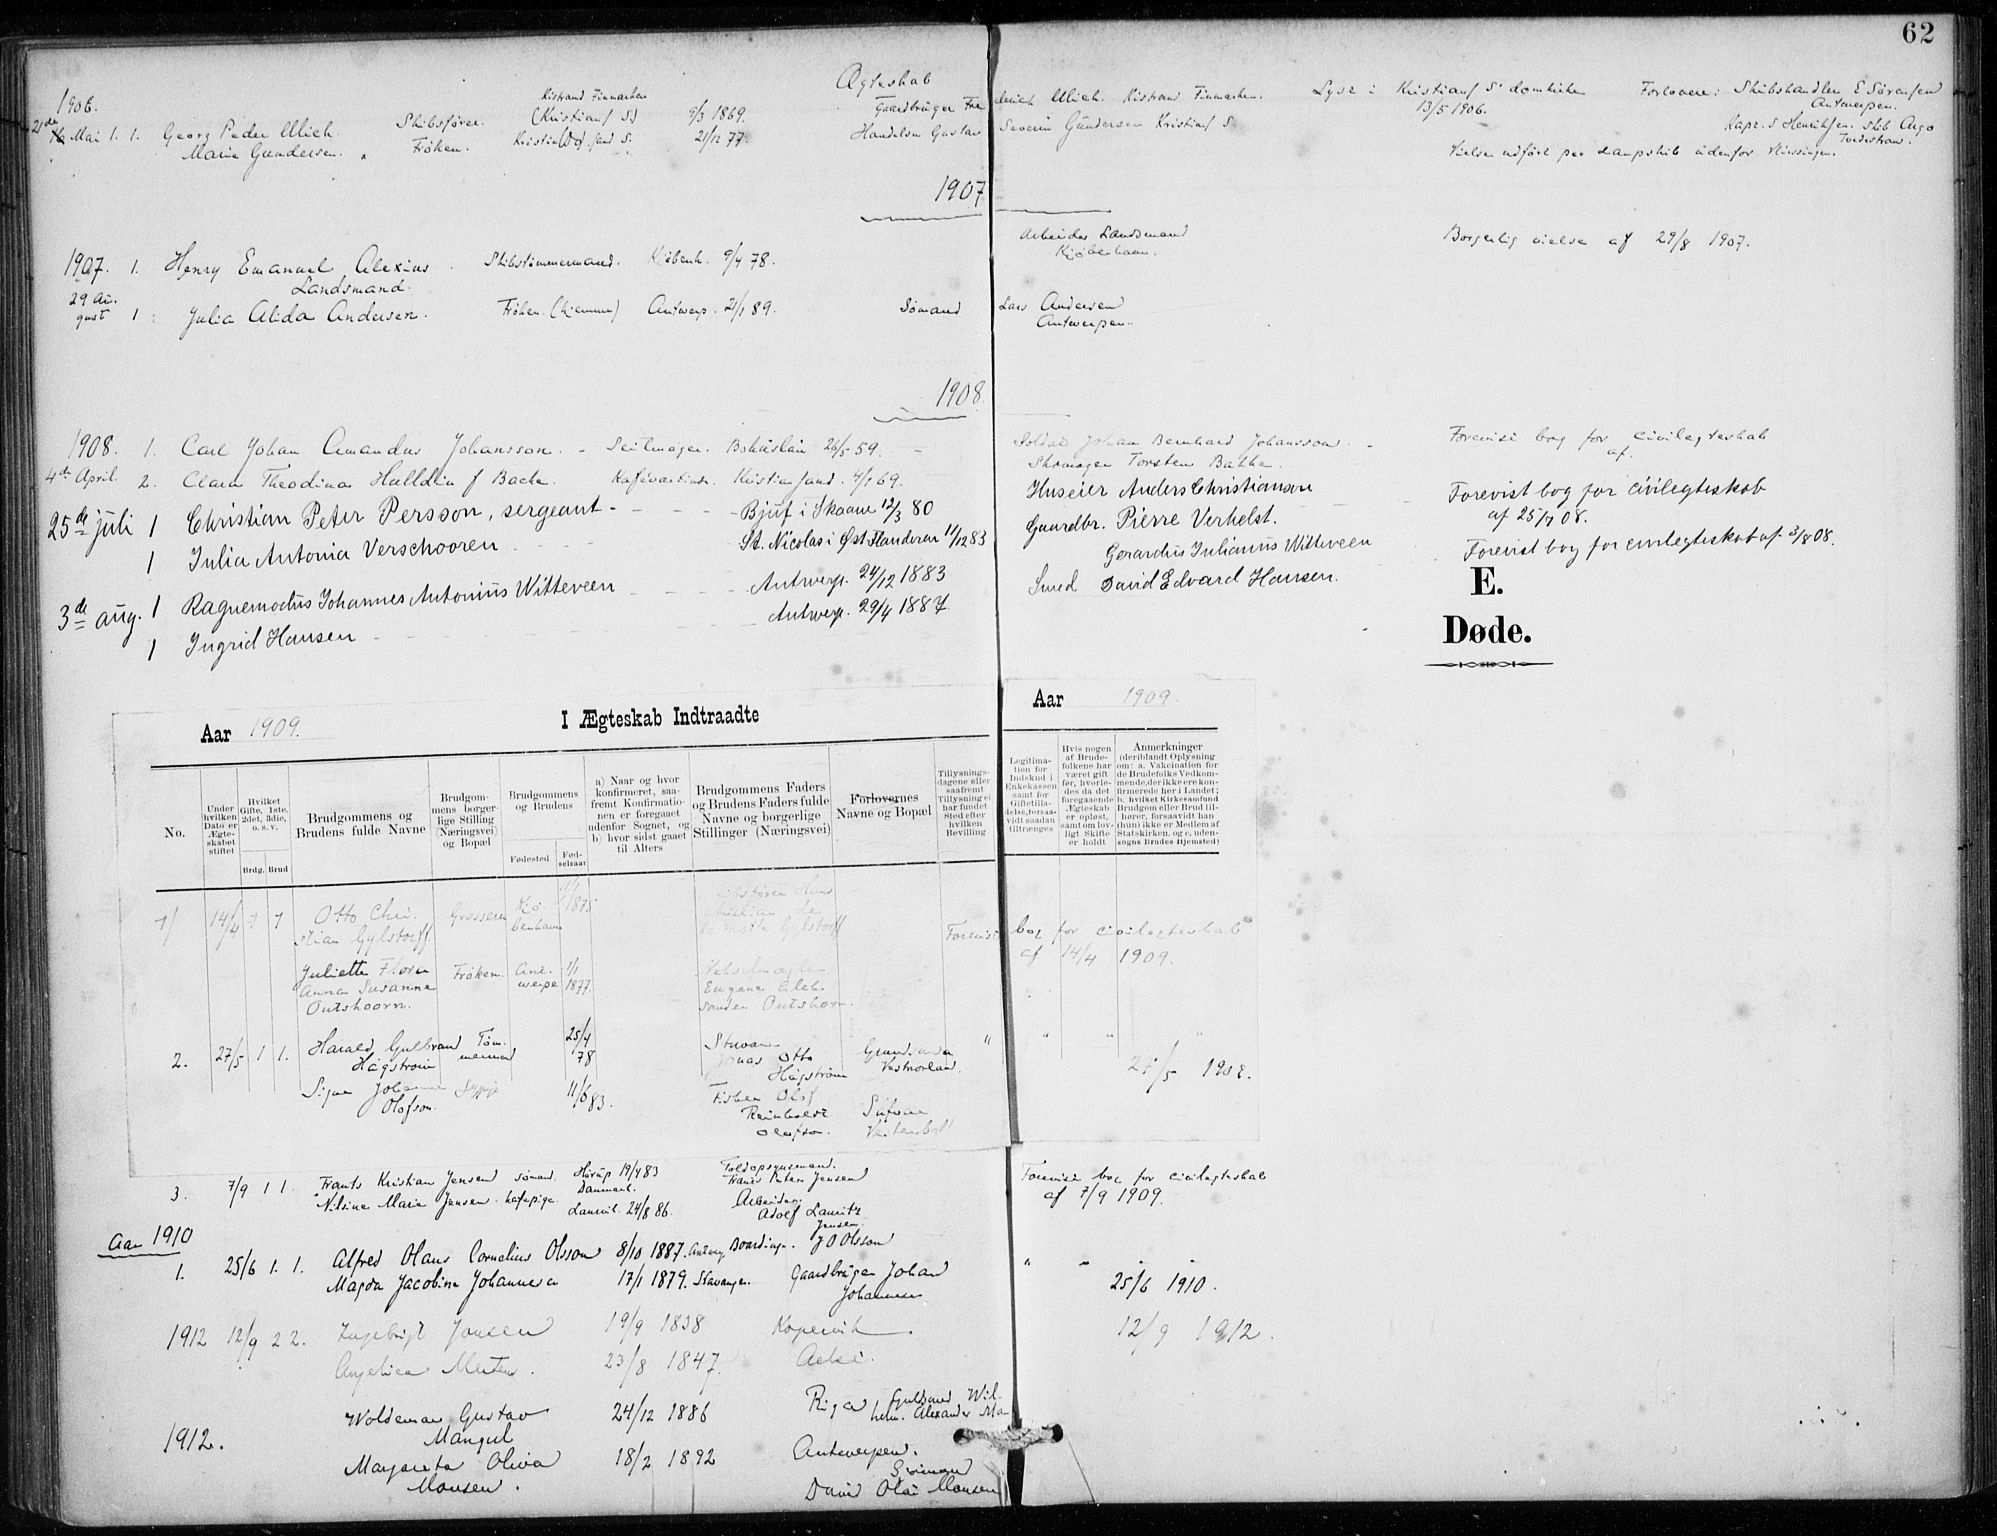 62
Ægteskab
1906.
21de Mai 1. 1. Georg Peder Ulich. Skibsfører. Kistrand Finmarken (Kristians S) 9/3 1869. Gaardbruger Fre derich Ulich. Kistrand Finmarken. Lyst i Kristians S. domkirke 13/5 1906. Forlovere: Skibshandler E Sørensen Antwerpen.
Maria Gundersen. Frøken. Kristiansand S. 21/12 77. Handelsm Gustav Severin Gundersen Kristians S. Kapt. S Henriksen. skib Argo Tvedestrand.
Vielsen udført paa dampskib udenfor Vlissingen.
1907
1907. 1. Henry Emanuel Alexius Landsmand. Skibstømmermand. Kjøbenh. 9/4 78. Arbeider Landsmand Kjøbenhavn. Borgerlig vielse af 29/8 1907.
29 August 1 Julia Alida Andersen. Frøken. (hjemme) Antwerp. 21/1 89. Sømand Lars Andersen Antwerpen.
1908.
1908. 1. Carl Johan Amandus Johansson. Seilmager. Bohuslän 26/5 59. Soldat Johan Bernhard Johansson. Forevist bog for civilegteskab af.
4de April. 2. Clara Theodina Halldin f Bache. Kafévertinde. Kristiansand. 4/1 69. Skomager Torsten Bakke.
25de juli 1 Christian Peter Persson, sergeant Bjuf i Skaane 12/3 80 Huseier Anders Christianson Forevist bog for civilegteskab af 25/7 08.
1 Julia Antonia Verschooren St. Nicolas i Øst Flanderen 11/12 83 Gaardbr. Pierre Verhelst.
3de aug. 1 Raguemodus Johannes Antonius Witteveen Antwerp. 24/12 1883 Gerardus Julianus Witteveen Forevist bog for civilegteskab af 3/8 08.
1 Ingrid Hansen Antwerp. 29/4 1887. Smed David Edvard Hansen.
E.
Døde.
Aar 1909. I Ægteskab Indtraadte Aar 1909.
No.
Under hvilken Dato er Ægteskabet stiftet
Hvilket Gifte, 1ste, 2det, 3die, o. s. v.
Brdg. Brud
Brudgommens og Brudens fulde Navne
Brudgommens borgerlige Stilling (Næringsvei) og Bopæl
Brudgommens og Brudens
Fødested Fødselsaar
a) Naar og hvor konfirmeret, saafremt Konfirmationen er foregaaet udenfor Sognet, og b) hvor sidst gaaet til Alters
Brudgommens Faders og Brudens Faders fulde Navne og borgerlige Stillinger (Næringsvei)
Forlovernes Navne og Bopæl
Tillysningsdagene eller saafremt Tillysning ei har fundet Sted efter hvilken Bevilling
Legitimation for Indskud i Enkekassen samt for Giftetilladelse, forsaavidt saadan tiltrænges
Hvis nogen af Brudefolkene har været gift før, hvorledes da det foregaaende Ægteskab er opløst, samt om lovligt Skifte er holdt
Anmerkninger (deriblandt Oplysning om: a. Vakcination for de Brudefolks Vedkommende, der ikke ere konfirmerede her i Landet; b. hvilket Kirkesamfund Brudgom eller Brud tilhører, forsaavidt han (hun) ikke er Medlem af Statskirken, og c. udensogns Brudes Hjemsted)
1/ 14/4 1 1 Otto Christian Gylstorff Grosserer Kjøbenhavn 1875 Skibsfører Hans Christian Gylstorff Forevist bog for civilegteskab af 14/4 1909.
Juliette Flora Anna Susanna Outshoorn. Frøken. Antwerpen 1/1 1877. Eugene Outshoorn.
2. 27/5 1 1. Harald Gulbrand Högström Tømmermand 25/4 78 Jonas Otto Högström " " " " 27/5
Signe Johanna Olofson. 11/6 83. Fisker Olof Reinholdt Olofson.
3. 7/9 1 1. Frants Kristian Jensen sømand. Hörup Danmark. 19/4 83 Toldopsynsmand. Frants Peter Jensen Forevist bog for civilegteskab af 7/9 1909.
Nilsine Marie Jensen. kafepige. 24/8 86. Arbeider. Adolf Lauritz Jensen.
Aar 1910
1. 25/6 1. 1. Alfred Olaus Cornelius Olsson 8/10 1887. Antwerp. Boardingm. J O Olsson " " 25/6 1910.
Magda Jacobine Johannesen 17/1 1879. Stavanger. Gaardbruger Johan Johannesen
1912 12/9 2 2. Ingebrigt Jonsen 19/9 1838 Kopervik. 12/9 1912.
Angelica Mertens. 23/8 1847.
1912. Woldemar Gustav Mangul 24/12 1886 Riga Gulbrand Wilhelm Alexander Man
Margareta Oliva Monsen. 18/2 1892 Antwerpen. Sømand David Olai Monsen